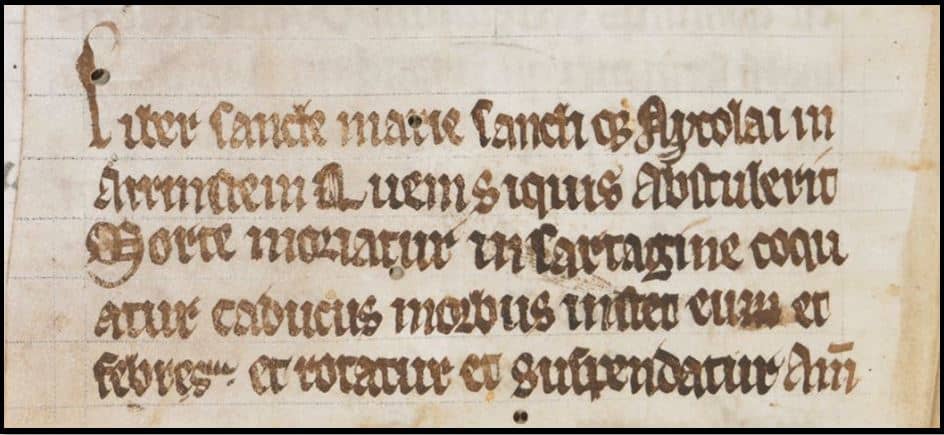 Liber sancte marie sancti qȝ Nycolai in
Arrinstein Quem siquis abstulerit
Morte moriatur in sartagine coqu
atur caducus morbus instet eum et
febres. et rotatur et suspendatur Am̄